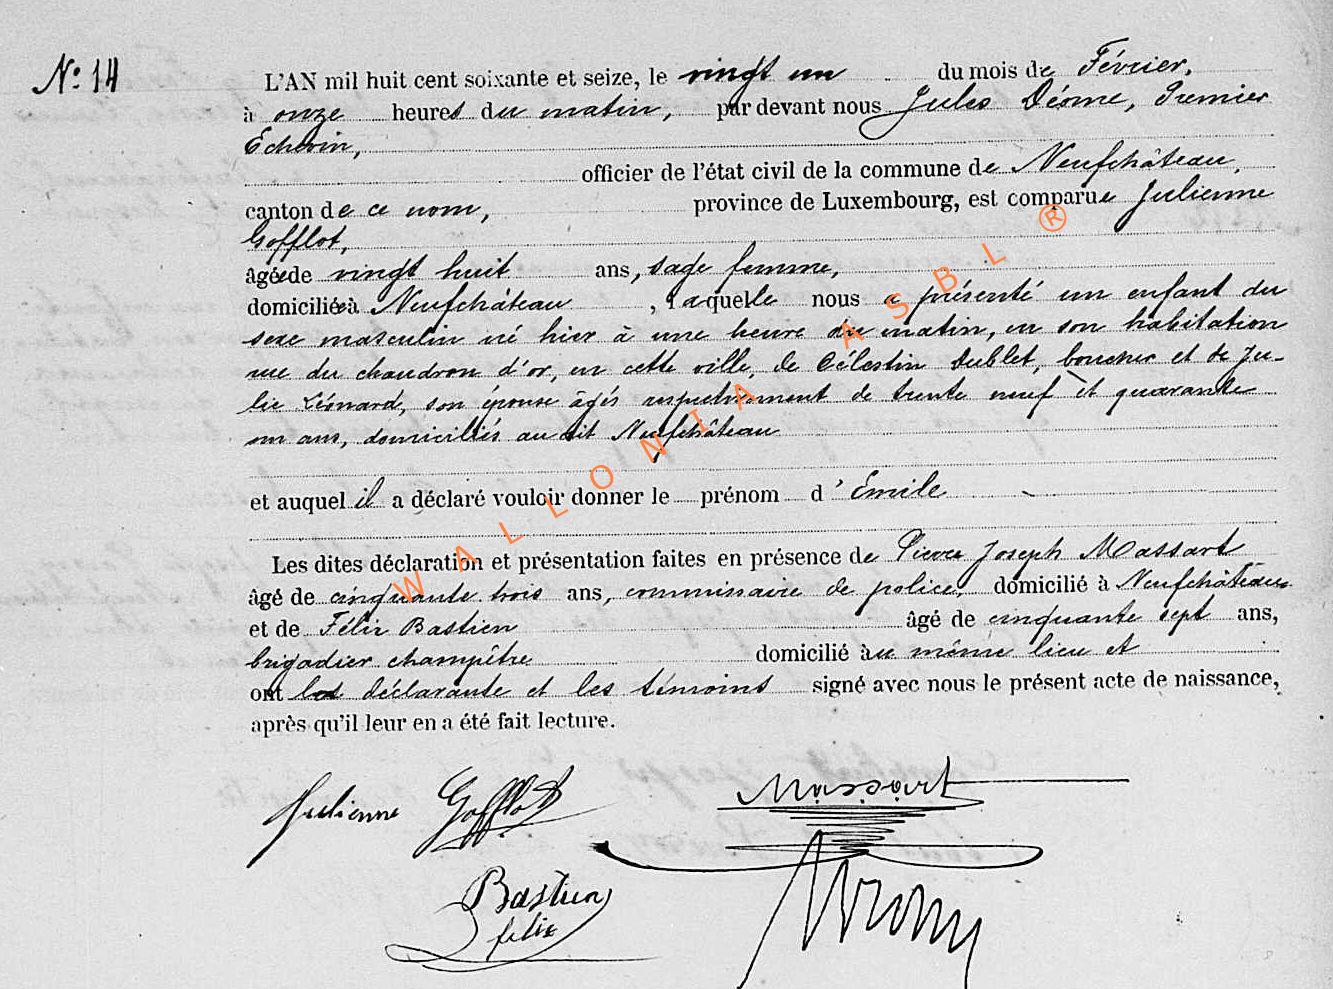 N° 14
L'AN mil huit cent soixante et seize, le vingt un du mois de Février,
à onze heures du matin, par devant nous Jules Déome, Premier
Echevin,
officier de l'état civil de la commune de Neufchâteau,
canton de ce nom, province de Luxembourg, est comparue Julienne
Gofflot,
âgée de vingt huit ans, sage femme,
domiciliée à Neufchâteau, laquelle nous a présenté un enfant du
sexe masculin né hier à une heure du matin, en son habitation
rue du chaudron d'or, en cette ville, de Célestin Dublet, boucher et de Ju-
lie Léonard, son épouse âgés respectivement de trente neuf et quarante
un ans, domiciliés au dit Neufchâteau
et auquel il a déclaré vouloir donner le prénom d'Emile
Les dites déclaration et présentation faites en présence de Pierre Joseph Massart
âgé de cinquante trois ans, commissaire de police, domicilié à Neufchâteau
et de Félix Bastien âgé de cinquante sept ans,
brigadier champêtre domicilié au même lieu et
ont la déclarante et les témoins signé avec nous le présent acte de naissance,
après qu'il leur en a été fait lecture.
Julienne Gofflot Massart
Bastien
felix
WALLONIA ASBL ®